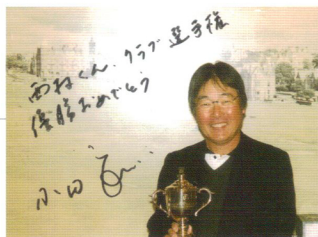 西村くん、クラブ選手権
優勝おめでとう